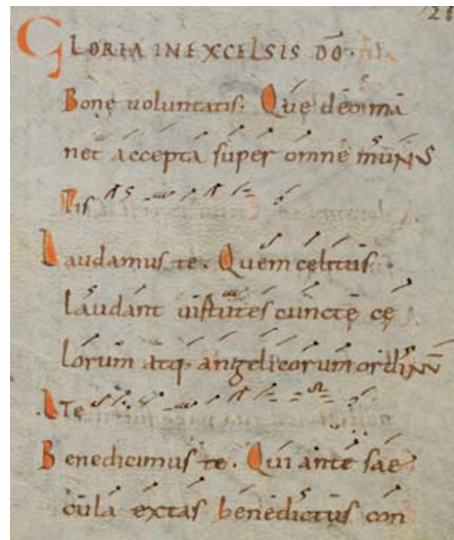 GLORIA IN EXCELSIS DŌ.
Bonę uoluntatis. Quę deo ma
net accepta super omne muNS
Tis
Laudamus te. Quem cęlitus
laudant uirtutes cunctę cę
lorum atq; angelicorum ordiNN̄
Te
Benedicimus te. Qui ante sae
cula extas benedictus con